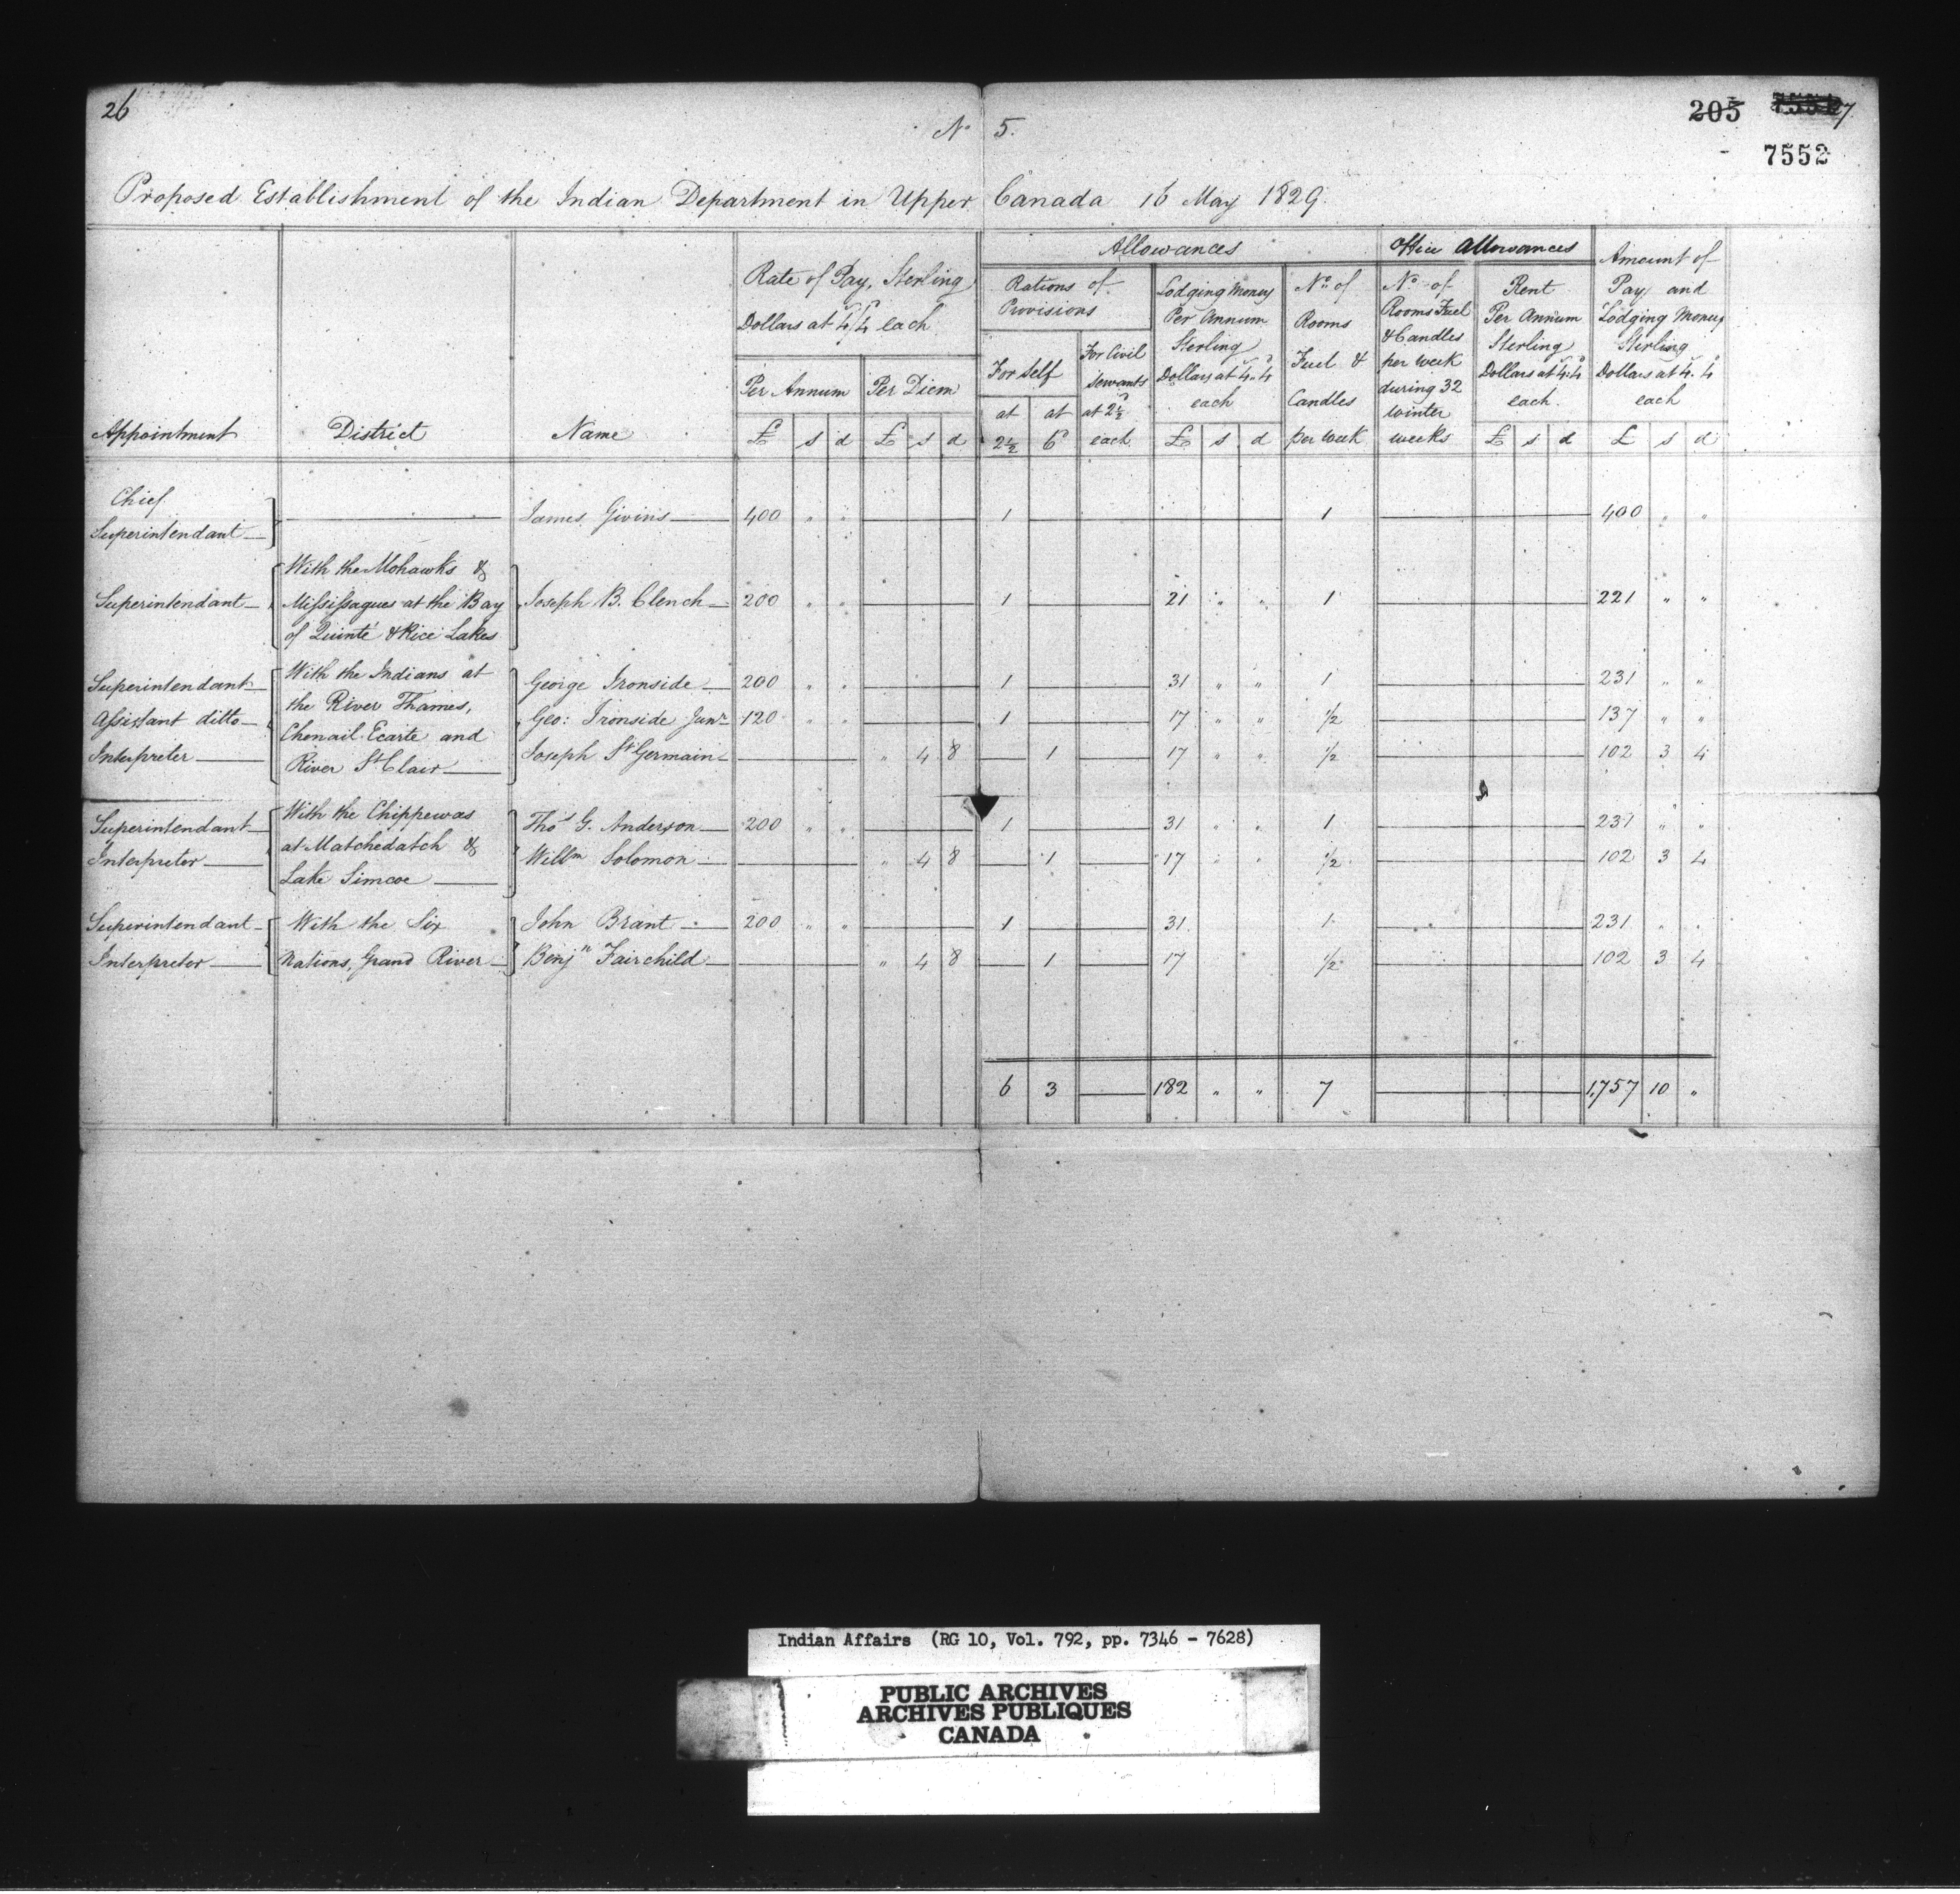 26
205 7
7552
No 5.
Proposed Establishment of the Indian Department in Upper Canada 16 May 1829.
Appointment
District
Name
Rate of Pay, Sterling
Dollars at 4/4 each
Per Annum
£ s d
Per Diem
£ s d
Allowances
Rations of
Provisions
For self
at 2½
at 6d
For Civil
servants
at 2½d
each
Lodging Money
Per Annum
Sterling
Dollars at 4s. 4d
each
£ s d
No. of
Rooms
Fuel &
Candles
per Week
Office Allowances
No. of
Rooms Fuel
& Candles
per week
during 32
winter
weeks
Rent
Per Annum
Sterling
Dollars at 4s.4d
each.
£ s d
Amount of
Pay and
Lodging Money
Sterling
Dollars at 4s. 4d
each
£ s d
Chief
Superintendant — James Givins — 400 " " — 1 — 1 — 400 " "
With the Mohawks &
Superintendant — Missisagues at the Bay Joseph B. Clench — 200 " " — 1 — 21 " " 1 — 221 " "
of Quinté & Rice Lakes
With the Indians at
Superintendant — George Ironside — 200 " " — 1 — 31 " " 1 — 231 " "
the River Thames,
Assistant ditto — Geo: Ironside Junr 120 " " — 1 — 17 " " ½ — 137 " "
Chenail Ecarte and
Interpreter — River St Clair — Joseph St Germain — " 4 8 — 1 — 17 " " ½ — 102 3 4
With the Chippewas
Superintendant — Thos G. Anderson — 200 " " — 1 — 31 " " 1 — 231 " "
at Matchedatch &
Interpreter — Willm Solomon — " 4 8 — 1 — 17 " " ½ — 102 3 4
Lake Simcoe —
Superintendant — With the Six John Brant — 200 " " — 1 — 31 1 — 231 " "
Interpreter — Nations, Grand River — Benjn Fairchild — " 4 8 — 1 — 17 ½ — 102 3 4
6 3 — 182 " " 7 — 1,757 10 "
Indian Affairs (RG 10, Vol. 792, pp. 7346 - 7628)
PUBLIC ARCHIVES
ARCHIVES PUBLIQUES
CANADA